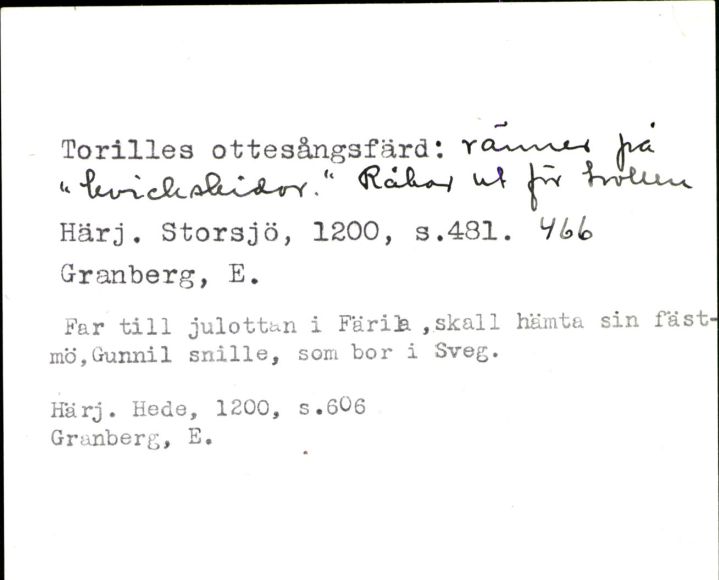 Torilles ottesångsfärd: ränner på
"kvickskidor." Råkar ut för trollen
Härj. Storsjö, 1200, s.481. 466
Granberg, E.
Far till julottan i Färila ,skall hämta sin fäst-
mö,Gunnil snille, som bor i Sveg.
Härj. Hede, 1200, s.606
Granberg, E.